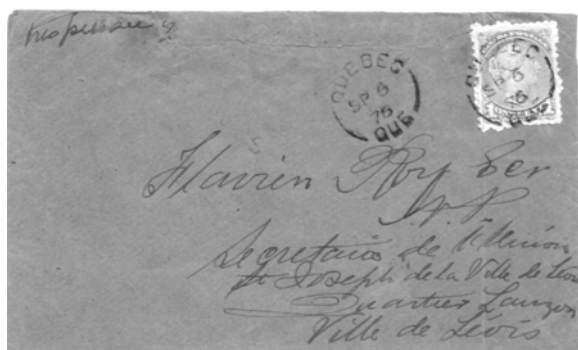 Très pressée
QUEBEC
SP 6
76
QUE
QUEBEC
SP 6
76
QUE
Flavien Roy Ecr
N.P.
Secretaire de l'Union
St Joseph de la Ville de Levis
Quartier Lauzon
Ville de Lévis